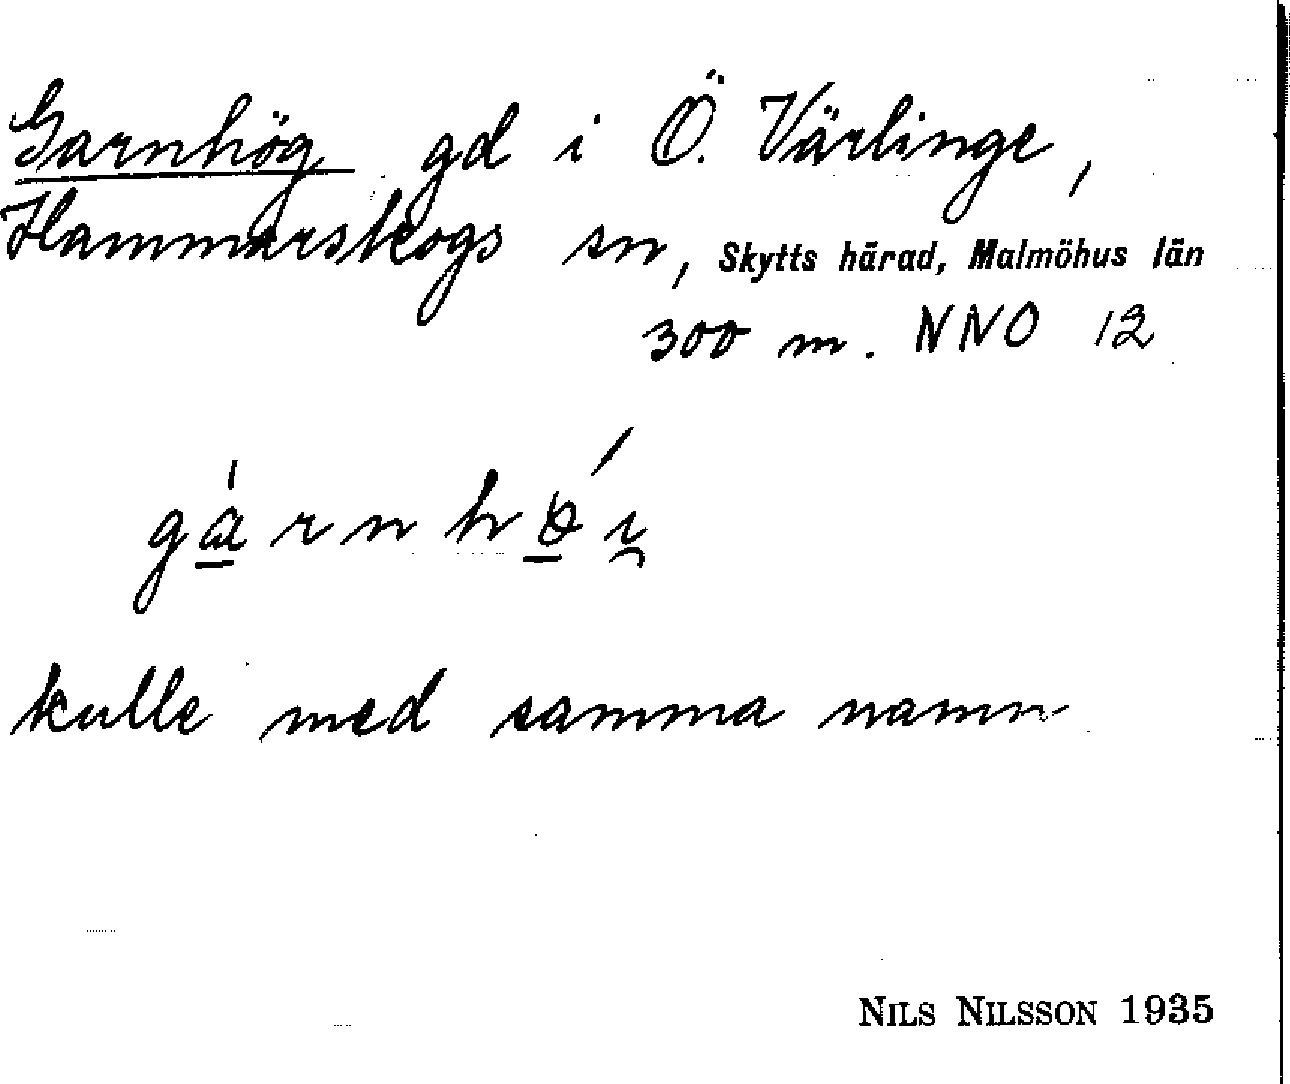 Garnhög gd i Ö. Värlinge,
Hammarskogs sn, Skytts härad, Malmöhus län
300 m. NNO 12
gárnhǿi̯
kulle med samma namn
NILS NILSSON 1935